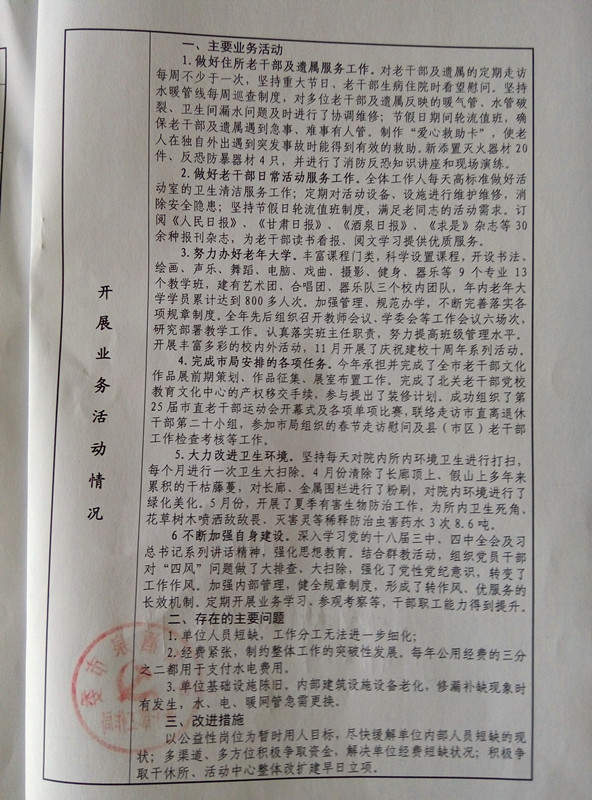 开展业务活动情况
一、主要业务活动
1.做好住所老干部及遗属服务工作。对老干部及遗属的定期走访
每周不少于一次，坚持重大节日、老干部生病住院时看望慰问。坚持
水暖管线每周巡查制度，对多位老干部及遗属反映的暖气管、水管破
裂、卫生间漏水问题及时进行了协调维修；节假日期间轮流值班，确
保老干部及遗属遇到急事、难事有人管。制作“爱心救助卡”，使老
人在独自外出遇到突发事故时能得到有效的救助。新添置灭火器材20
件、反恐防暴器材4只，并进行了消防反恐知识讲座和现场演练。
2.做好老干部日常活动服务工作。全体工作人每天高标准做好活
动室的卫生清洁服务工作；定期对活动设备、设施进行维护维修，消
除安全隐患；坚持节假日轮流值班制度，满足老同志的活动需求。订
阅《人民日报》、《甘肃日报》、《酒泉日报》、《求是》杂志等30
余种报刊杂志，为老干部读书看报、阅文学习提供优质服务。
3.努力办好老年大学。丰富课程门类，科学设置课程，开设书法、
绘画、声乐、舞蹈、电脑、戏曲、摄影、健身、器乐等9个专业13
个教学班，建有艺术团、合唱团、器乐队三个校内团队，年内老年大
学学员累计达到800多人次。加强管理、规范办学，不断完善落实各
项规章制度。全年先后组织召开教师会议、学委会等工作会议六场次，
研究部署教学工作。认真落实班主任职责，努力提高班级管理水平。
开展丰富多彩的校内外活动，11月开展了庆祝建校十周年系列活动。
4.完成市局安排的各项任务。今年承担并完成了全市老干部文化
作品展前期策划、作品征集、展室布置工作。完成了北关老干部党校
教育文化中心的产权移交手续，参与提出了装修计划。成功组织了第
25届市直老干部运动会开幕式及各项单项比赛，联络走访市直离退休
干部第二十小组，参加市局组织的春节走访慰问及县（市区）老干部
工作检查考核等工作。
5.大力改进卫生环境。坚持每天对院内所内环境卫生进行打扫，
每个月进行一次卫生大扫除。4月份清除了长廊顶上、假山上多年来
累积的干枯藤蔓，对长廊、金属围栏进行了粉刷，对院内环境进行了
绿化美化。5月份，开展了夏季有害生物防治工作，为所内卫生死角、
花草树木喷洒敌敌畏、灭害灵等稀释防治虫害药水3次8.6吨。
6 不断加强自身建设。深入学习党的十八届三中、四中全会及习
总书记系列讲话精神，强化思想教育。结合群教活动，组织党员干部
对“四风”问题做了大排查、大扫除，强化了党性党纪意识，转变了
工作作风。加强内部管理，健全规章制度，形成了转作风、优服务的
长效机制。定期开展业务学习、参观考察等，干部职工能力得到提升。
二、存在的主要问题
1.单位人员短缺，工作分工无法进一步细化；
2.经费紧张，制约整体工作的突破性发展。每年公用经费的三分
之二都用于支付水电费用。
3.单位基础设施陈旧。内部建筑设施设备老化，修漏补缺现象时
有发生，水、电、暖网管急需更换。
三、改进措施
以公益性岗位为暂时用人目标，尽快缓解单位内部人员短缺的现
状；多渠道、多方位积极争取资金，解决单位经费短缺状况；积极争
取干休所、活动中心整体改扩建早日立项。